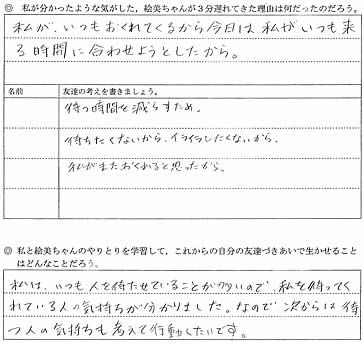 ◎ 私が分かったような気がした，絵美ちゃんが３分遅れてきた理由は何だったのだろう。
私が、いつもおくれてくるから今日は私がいつも来
る時間に合わせようとしたから。
名前 友達の考えを書きましょう。
待つ時間を減らすため。
待ちたくないから、イライラしたくないから。
私がまたおくれると思ったから。
◎ 私と絵美ちゃんのやりとりを学習して，これからの自分の友達づきあいで生かせること
はどんなことだろう。
私は、いつも人を待たせていることが多いので、私を待ってく
れている人の気持ちが分かりました。なので次からは待
つ人の気持ちも考えて行動したいです。